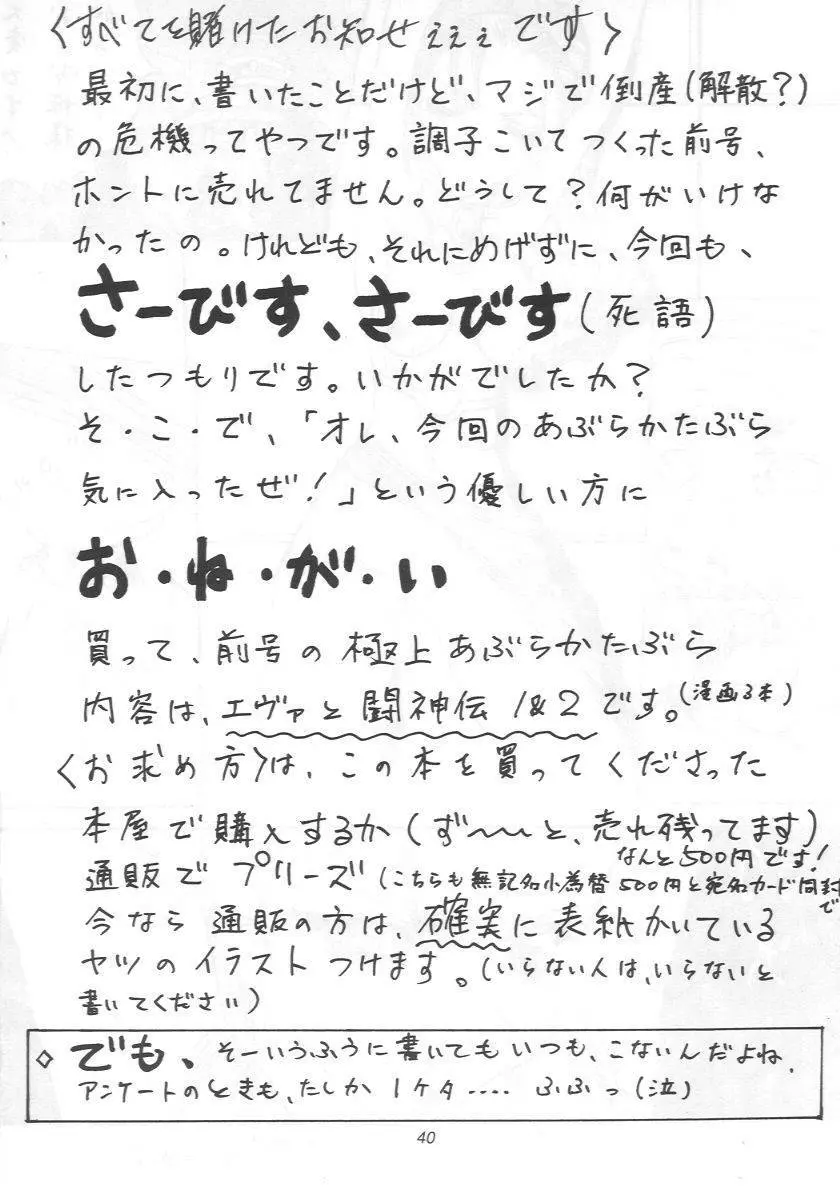 〈すべてを賭けたお知せぇぇぇです〉
最初に、書いたことだけど、マジで倒産(解散?)
の危機ってやつです。調子こいてつくった前号、
ホントに売れてません。どうして?何がいけな
かったの。けれども、それにめげずに、今回も、
さーびす、さーびす(死語)
したつもりです。いかがでしたか?
そ・こ・で、「オレ、今回のあぶらかたぶら
気に入ったぜ!」という優しい方に
お・ね・が・い
買って、前号の極上あぶらかたぶら
内容は、エヴァと闘神伝1&2です。(漫画3本)
〈お求め方〉は、この本を買ってくださった
本屋で購入するか(ず〜〜〜と、売れ残ってます)
なんと500円です!
通販でプリーズ(こちらも無記名小為替500円と宛名カード同封
で
今なら通販の方は、確実に表紙かいている
ヤツのイラストつけます。(いらない人は、いらないと
書いてください)
◇でも、そーいうふうに書いてもいつも、こないんだよね、
アンケートのときも、たしか1ケタ....ふふっ(泣)
40